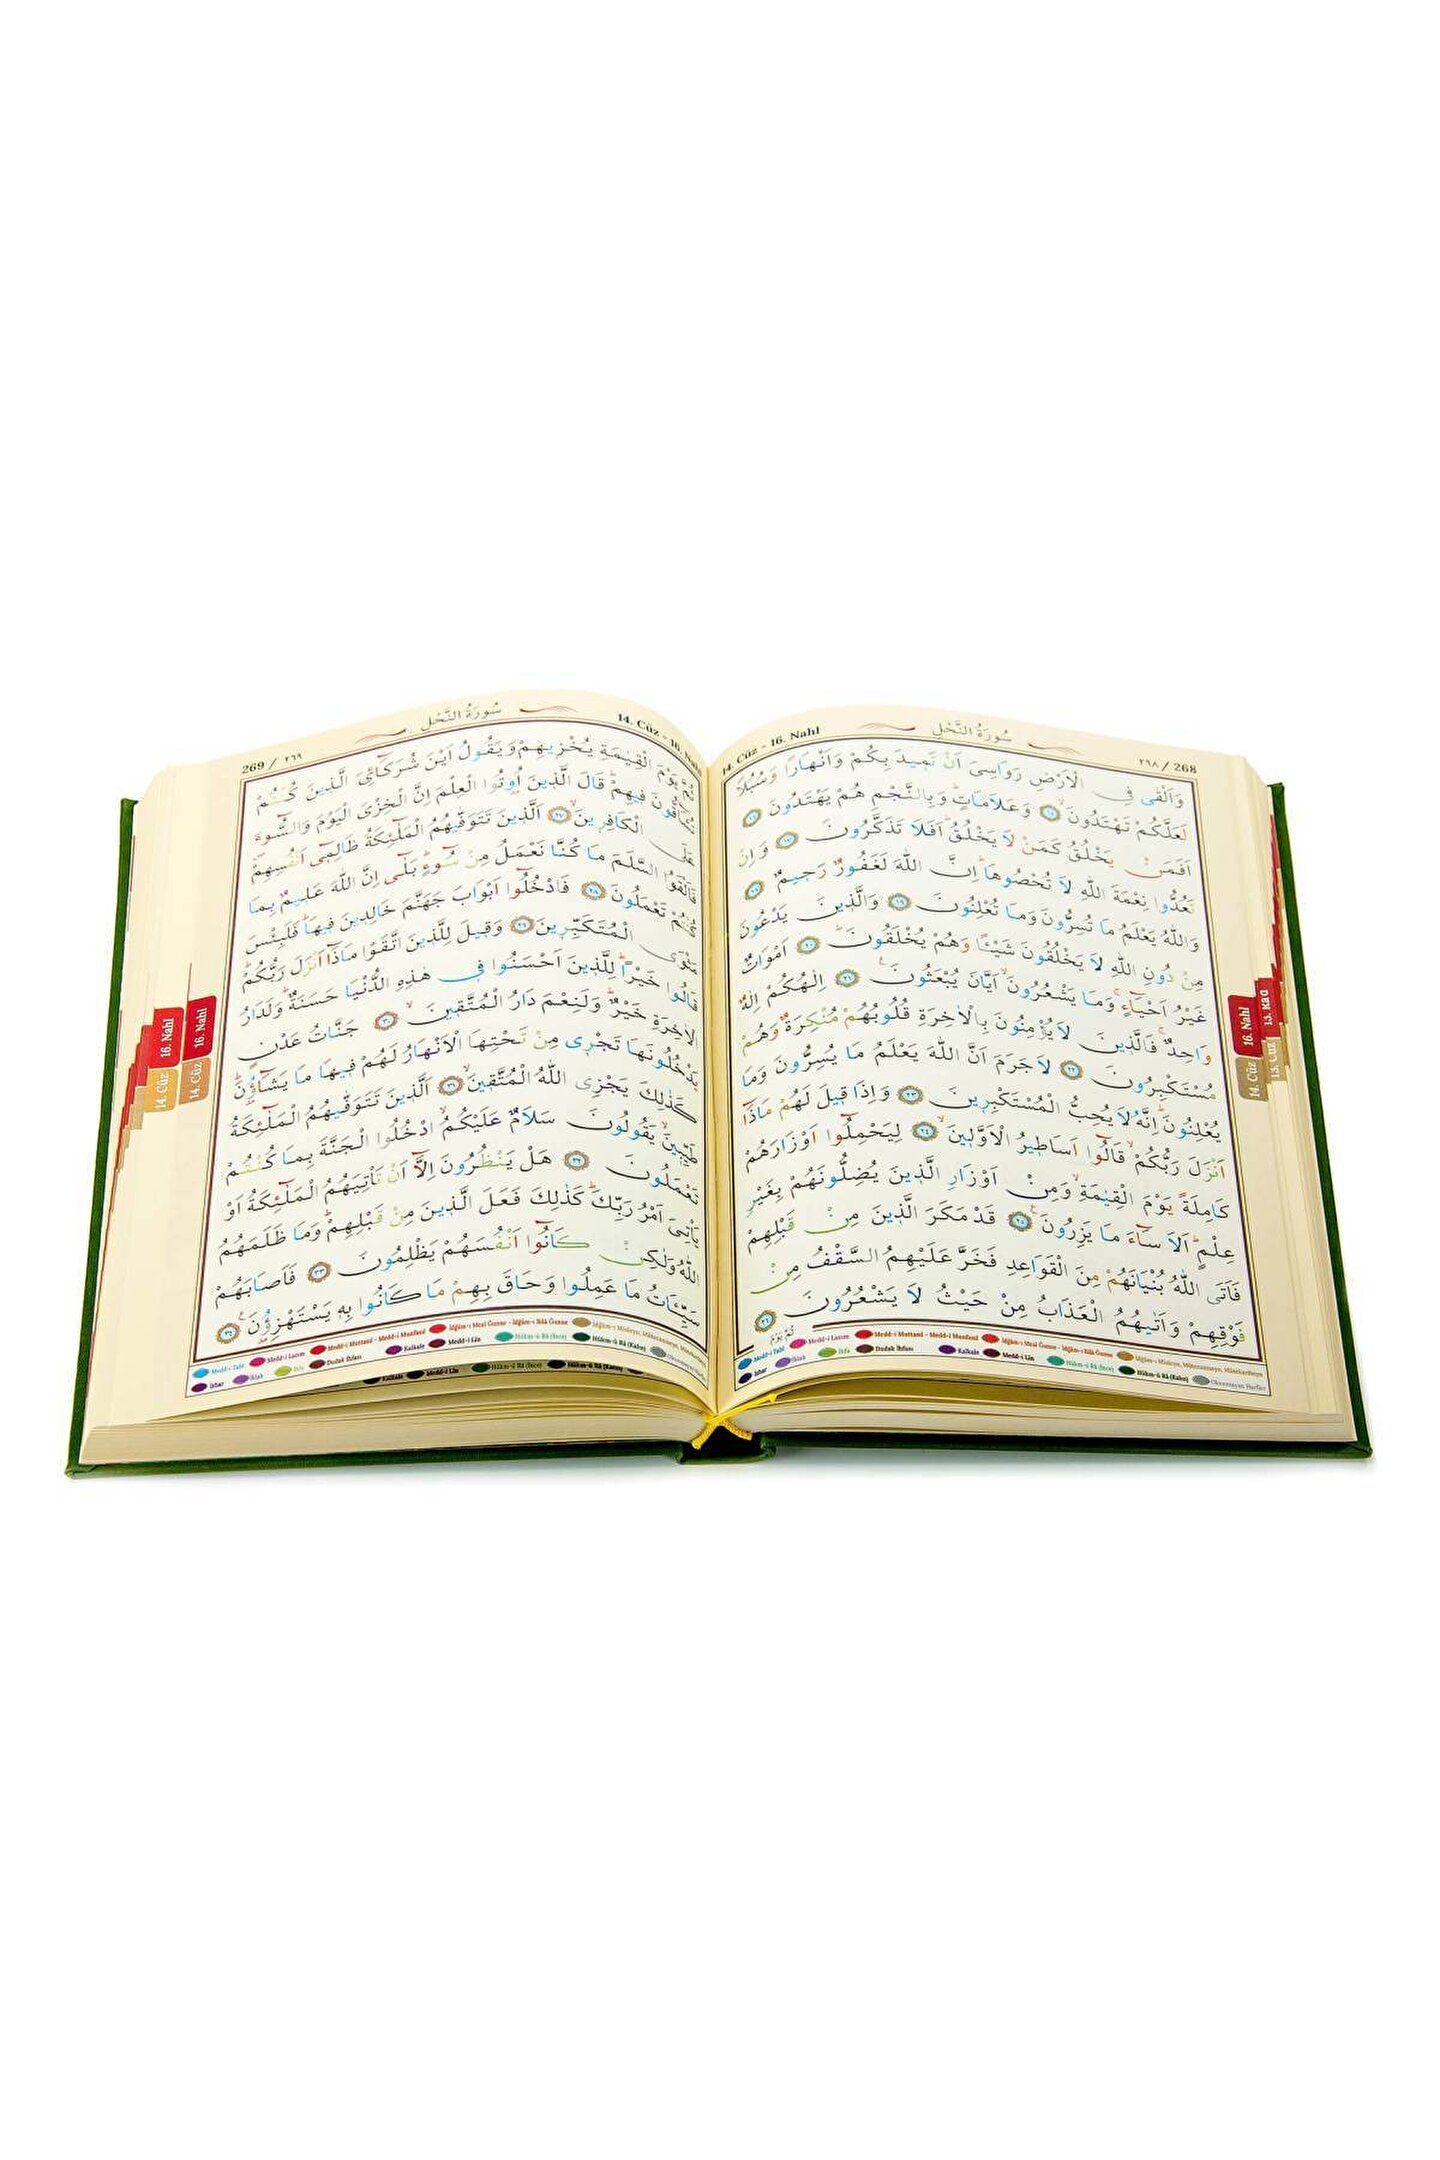 14. Cüz - 16. Nahl سُورَةُ النَّحْلِ ٢٦٨ / 268
وَاَلْقٰى فِي الْاَرْضِ رَوَاسِيَ اَنْ تَم۪يدَ بِكُمْ وَاَنْهَارًا وَسُبُلًا
لَعَلَّكُمْ تَهْتَدُونَۙ ﴿١٥﴾ وَعَلَامَاتٍۜ وَبِالنَّجْمِ هُمْ يَهْتَدُونَ ﴿١٦﴾
اَفَمَنْ يَخْلُقُ كَمَنْ لَا يَخْلُقُۜ اَفَلَا تَذَكَّرُونَ ﴿١٧﴾ وَاِنْ
تَعُدُّوا نِعْمَةَ اللّٰهِ لَا تُحْصُوهَاۜ اِنَّ اللّٰهَ لَغَفُورٌ رَح۪يمٌ ﴿١٨﴾
وَاللّٰهُ يَعْلَمُ مَا تُسِرُّونَ وَمَا تُعْلِنُونَ ﴿١٩﴾ وَالَّذ۪ينَ يَدْعُونَ
مِنْ دُونِ اللّٰهِ لَا يَخْلُقُونَ شَيْـًٔا وَهُمْ يُخْلَقُونَۜ ﴿٢٠﴾ اَمْوَاتٌ
غَيْرُ اَحْيَٓاءٍۚ وَمَا يَشْعُرُونَۙ اَيَّانَ يُبْعَثُونَ۟ ﴿٢١﴾ اِلٰهُكُمْ اِلٰهٌ
وَاحِدٌۚ فَالَّذ۪ينَ لَا يُؤْمِنُونَ بِالْاٰخِرَةِ قُلُوبُهُمْ مُنْكِرَةٌ وَهُمْ
مُسْتَكْبِرُونَ ﴿٢٢﴾ لَا جَرَمَ اَنَّ اللّٰهَ يَعْلَمُ مَا يُسِرُّونَ وَمَا
يُعْلِنُونَۜ اِنَّهُ لَا يُحِبُّ الْمُسْتَكْبِر۪ينَ ﴿٢٣﴾ وَاِذَا ق۪يلَ لَهُمْ مَاذَٓا
اَنْزَلَ رَبُّكُمْۙ قَالُٓوا اَسَاط۪يرُ الْاَوَّل۪ينَۙ ﴿٢٤﴾ لِيَحْمِلُٓوا اَوْزَارَهُمْ
كَامِلَةً يَوْمَ الْقِيٰمَةِۙ وَمِنْ اَوْزَارِ الَّذ۪ينَ يُضِلُّونَهُمْ بِغَيْرِ
عِلْمٍۜ اَلَا سَٓاءَ مَا يَزِرُونَ۟ ﴿٢٥﴾ قَدْ مَكَرَ الَّذ۪ينَ مِنْ قَبْلِهِمْ
فَاَتَى اللّٰهُ بُنْيَانَهُمْ مِنَ الْقَوَاعِدِ فَخَرَّ عَلَيْهِمُ السَّقْفُ مِنْ
فَوْقِهِمْ وَاَتٰيهُمُ الْعَذَابُ مِنْ حَيْثُ لَا يَشْعُرُونَ ﴿٢٦﴾
ثُمَّ يَوْمَ
Medd-i Tabî Medd-i Lazım Medd-i Muttasıl - Medd-i Munfasıl İdğâm-ı Meal Ğunne - İdğâm-ı Bilâ Ğunne
İzhar İklab İhfa Dudak İhfası Kalkale Medd-i Lîn Hükm-ü Râ (İnce) Hükm-ü Râ (Kalın) Okunmayan Harfler
16. Nahl
14. Cüz
13. Cüz
269 / ٢٦٩ سُورَةُ النَّحْلِ 14. Cüz - 16. Nahl
ثُمَّ يَوْمَ الْقِيٰمَةِ يُخْز۪يهِمْ وَيَقُولُ اَيْنَ شُرَكَٓاءِيَ الَّذ۪ينَ كُنْتُمْ
تُشَٓاقُّونَ ف۪يهِمْۜ قَالَ الَّذ۪ينَ اُو۫تُوا الْعِلْمَ اِنَّ الْخِزْيَ الْيَوْمَ وَالسُّٓوءَ
عَلَى الْكَافِر۪ينَۙ ﴿٢٧﴾ اَلَّذ۪ينَ تَتَوَفّٰيهُمُ الْمَلٰٓئِكَةُ ظَالِم۪ٓي اَنْفُسِهِمْۖ
فَاَلْقَوُا السَّلَمَ مَا كُنَّا نَعْمَلُ مِنْ سُٓوءٍۜ بَلٰٓى اِنَّ اللّٰهَ عَل۪يمٌ بِمَا
كُنْتُمْ تَعْمَلُونَ ﴿٢٨﴾ فَادْخُلُٓوا اَبْوَابَ جَهَنَّمَ خَالِد۪ينَ ف۪يهَاۜ فَلَبِئْسَ
مَثْوَى الْمُتَكَبِّر۪ينَ ﴿٢٩﴾ وَق۪يلَ لِلَّذ۪ينَ اتَّقَوْا مَاذَٓا اَنْزَلَ رَبُّكُمْۜ
قَالُوا خَيْرًاۜ لِلَّذ۪ينَ اَحْسَنُوا ف۪ي هٰذِهِ الدُّنْيَا حَسَنَةٌۜ وَلَدَارُ
الْاٰخِرَةِ خَيْرٌۜ وَلَنِعْمَ دَارُ الْمُتَّق۪ينَۙ ﴿٣٠﴾ جَنَّاتُ عَدْنٍ
يَدْخُلُونَهَا تَجْر۪ي مِنْ تَحْتِهَا الْاَنْهَارُ لَهُمْ ف۪يهَا مَا يَشَٓاؤُ۫نَۜ
كَذٰلِكَ يَجْزِي اللّٰهُ الْمُتَّق۪ينَۙ ﴿٣١﴾ اَلَّذ۪ينَ تَتَوَفّٰيهُمُ الْمَلٰٓئِكَةُ
طَيِّب۪ينَۙ يَقُولُونَ سَلَامٌ عَلَيْكُمُۙ ادْخُلُوا الْجَنَّةَ بِمَا كُنْتُمْ
تَعْمَلُونَ ﴿٣٢﴾ هَلْ يَنْظُرُونَ اِلَّٓا اَنْ تَأْتِيَهُمُ الْمَلٰٓئِكَةُ اَوْ
يَأْتِيَ اَمْرُ رَبِّكَۜ كَذٰلِكَ فَعَلَ الَّذ۪ينَ مِنْ قَبْلِهِمْۜ وَمَا ظَلَمَهُمُ
اللّٰهُ وَلٰكِنْ كَانُٓوا اَنْفُسَهُمْ يَظْلِمُونَ ﴿٣٣﴾ فَاَصَابَهُمْ
سَيِّـَٔاتُ مَا عَمِلُوا وَحَاقَ بِهِمْ مَا كَانُوا بِه۪ يَسْتَهْزِؤُ۫نَ۟ ﴿٣٤﴾
Medd-i Tabî Medd-i Lazım Medd-i Muttasıl - Medd-i Munfasıl İdğâm-ı Meal Ğunne - İdğâm-ı Bilâ Ğunne
İzhar İklab İhfa Dudak İhfası Kalkale Medd-i Lîn Hükm-ü Râ (İnce) Hükm-ü Râ (Kalın) Okunmayan Harfler
16. Nahl
16. Nahl
14. Cüz
14. Cüz